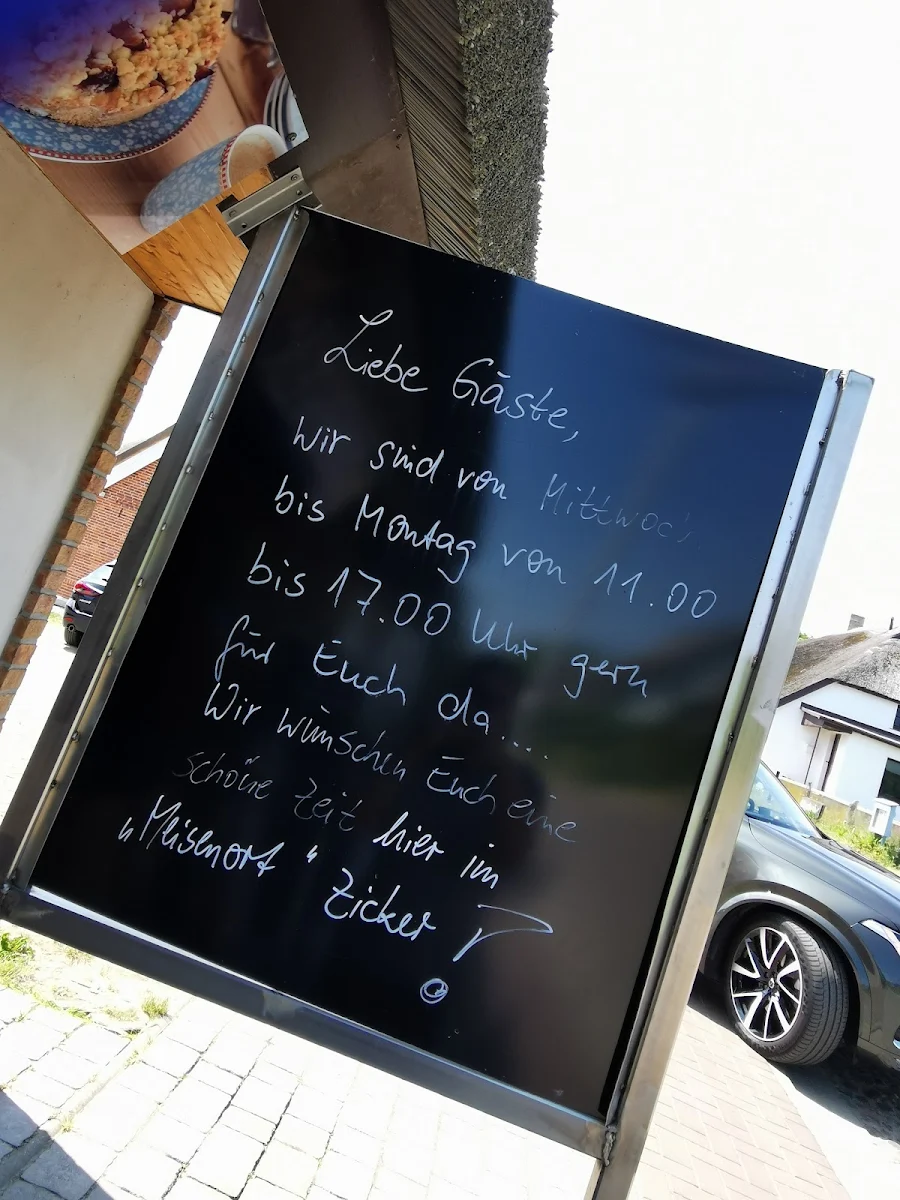 Liebe Gäste,
Wir sind von Mittwoch
bis Montag von 11.00
bis 17.00 Uhr gern
für Euch da....
Wir wünschen Euch eine
schöne Zeit hier im
„Meisenort“ Zicker!